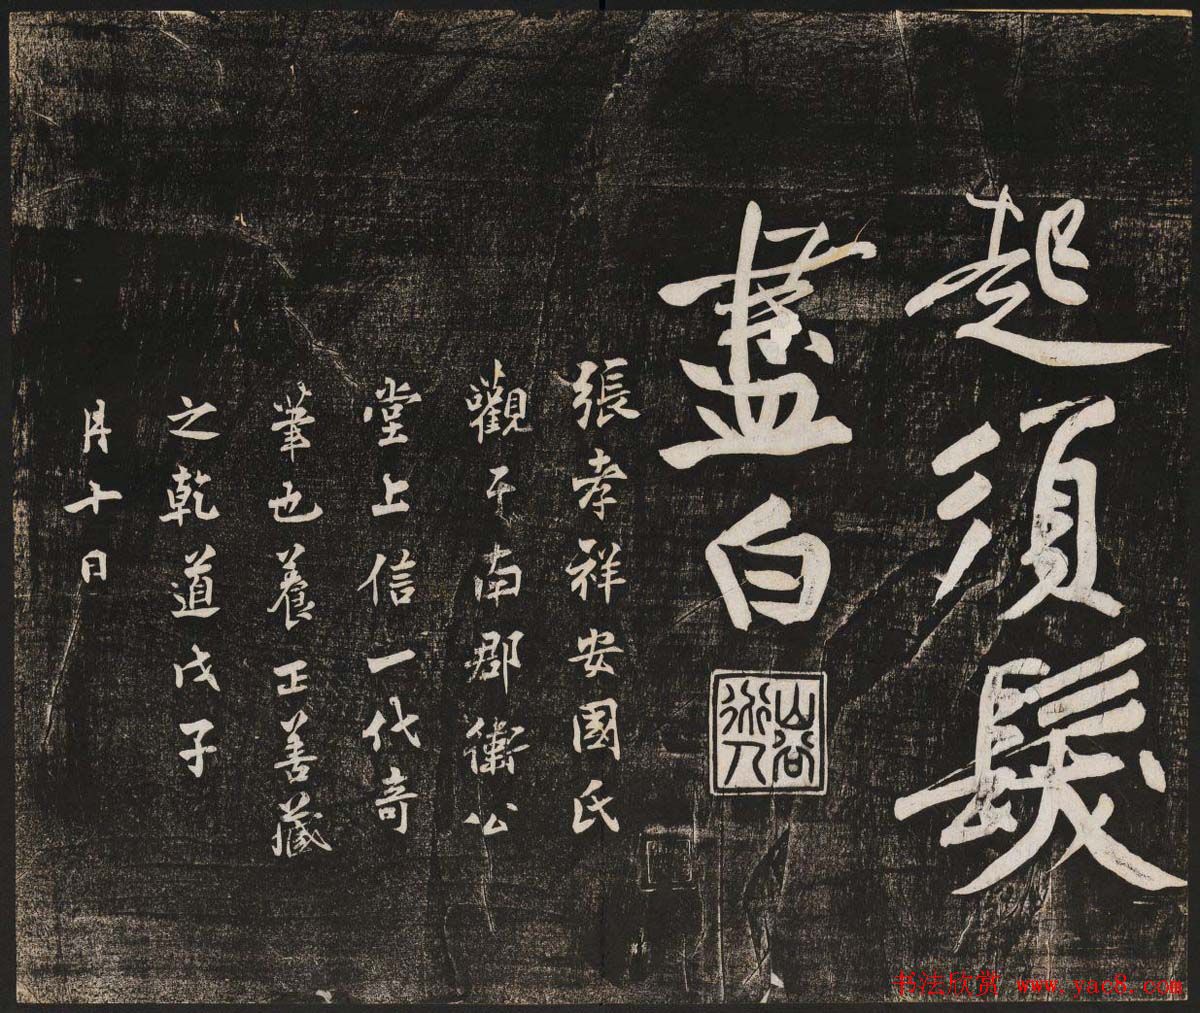 起須髮
盡白
山谷道人
張孝祥安國氏
觀于南郡衞公
堂上信一代奇
筆也養正善藏
之乾道戊子
月十日
书法欣赏 www.yac8.com